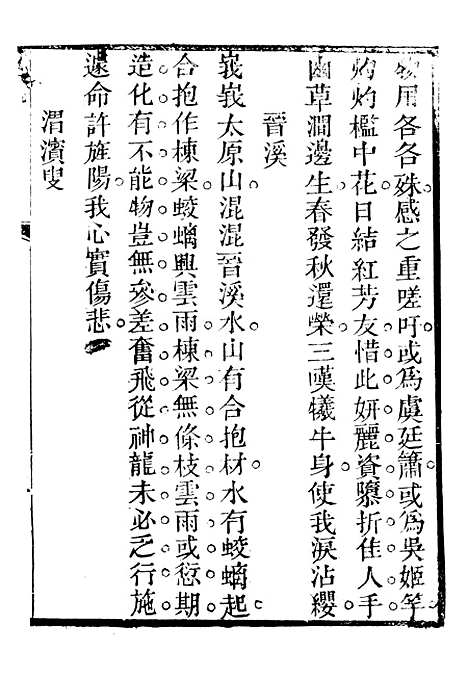 物用各各殊感之重嗟吁或爲虞廷簫或爲吳姬竽
灼灼檻中花日結紅芳友惜此妍麗資隳折佳人手
幽草澗邊生春發秋還榮三嘆犧牛身使我淚沾纓
晉溪
峩峩太原山混混晉溪水山有合抱材水有蛟螭起
合抱作棟梁蛟螭興雲雨棟梁無條枝雲雨或愆期
造化有不能物豈無參差奮飛從神龍未必乏行施
遽命許旌陽我心實傷悲
渭濱叟